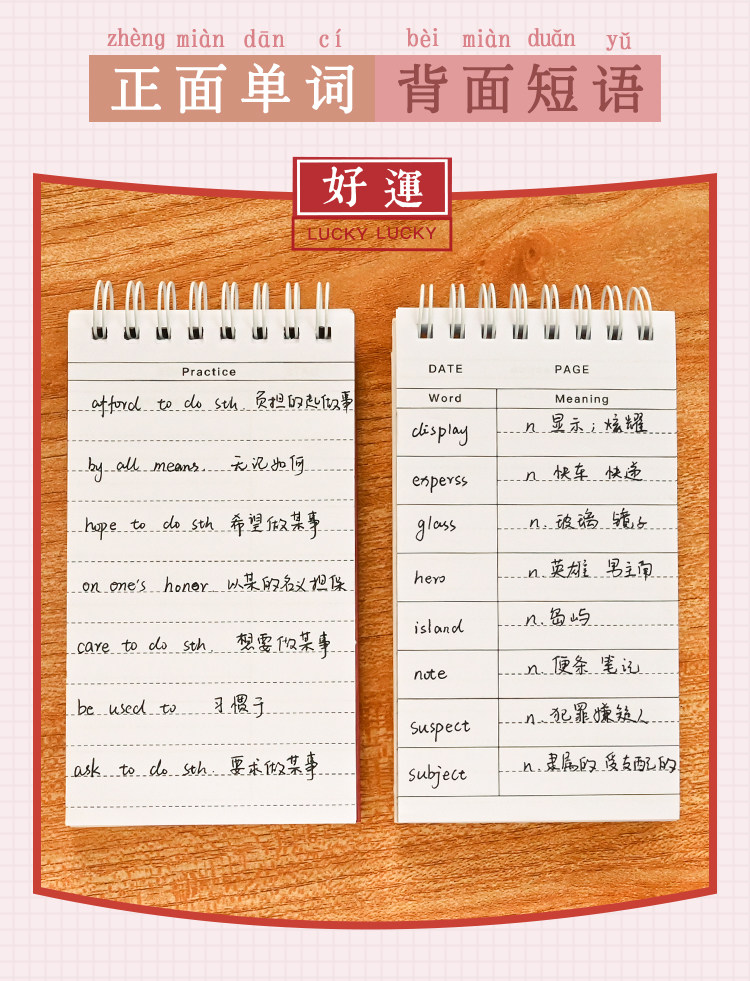 zhèng miàn dān cí bèi miàn duǎn yǔ
正面单词 背面短语
好運
LUCKY LUCKY
Practice
afford to do sth. 负担的起做事
by all means. 无论如何
hope to do sth 希望做某事
on one's honor 以某的名义担保
care to do sth. 想要做某事
be used to 习惯于
ask to do sth. 要求做某事
DATE PAGE
Word Meaning
display n. 显示；炫耀
experss n. 快车 快递
glass n. 玻璃 镜子
hero n. 英雄 男主角
island n. 岛屿
note n. 便条 笔记
suspect n. 犯罪嫌疑人
subject n. 隶属的 受支配的